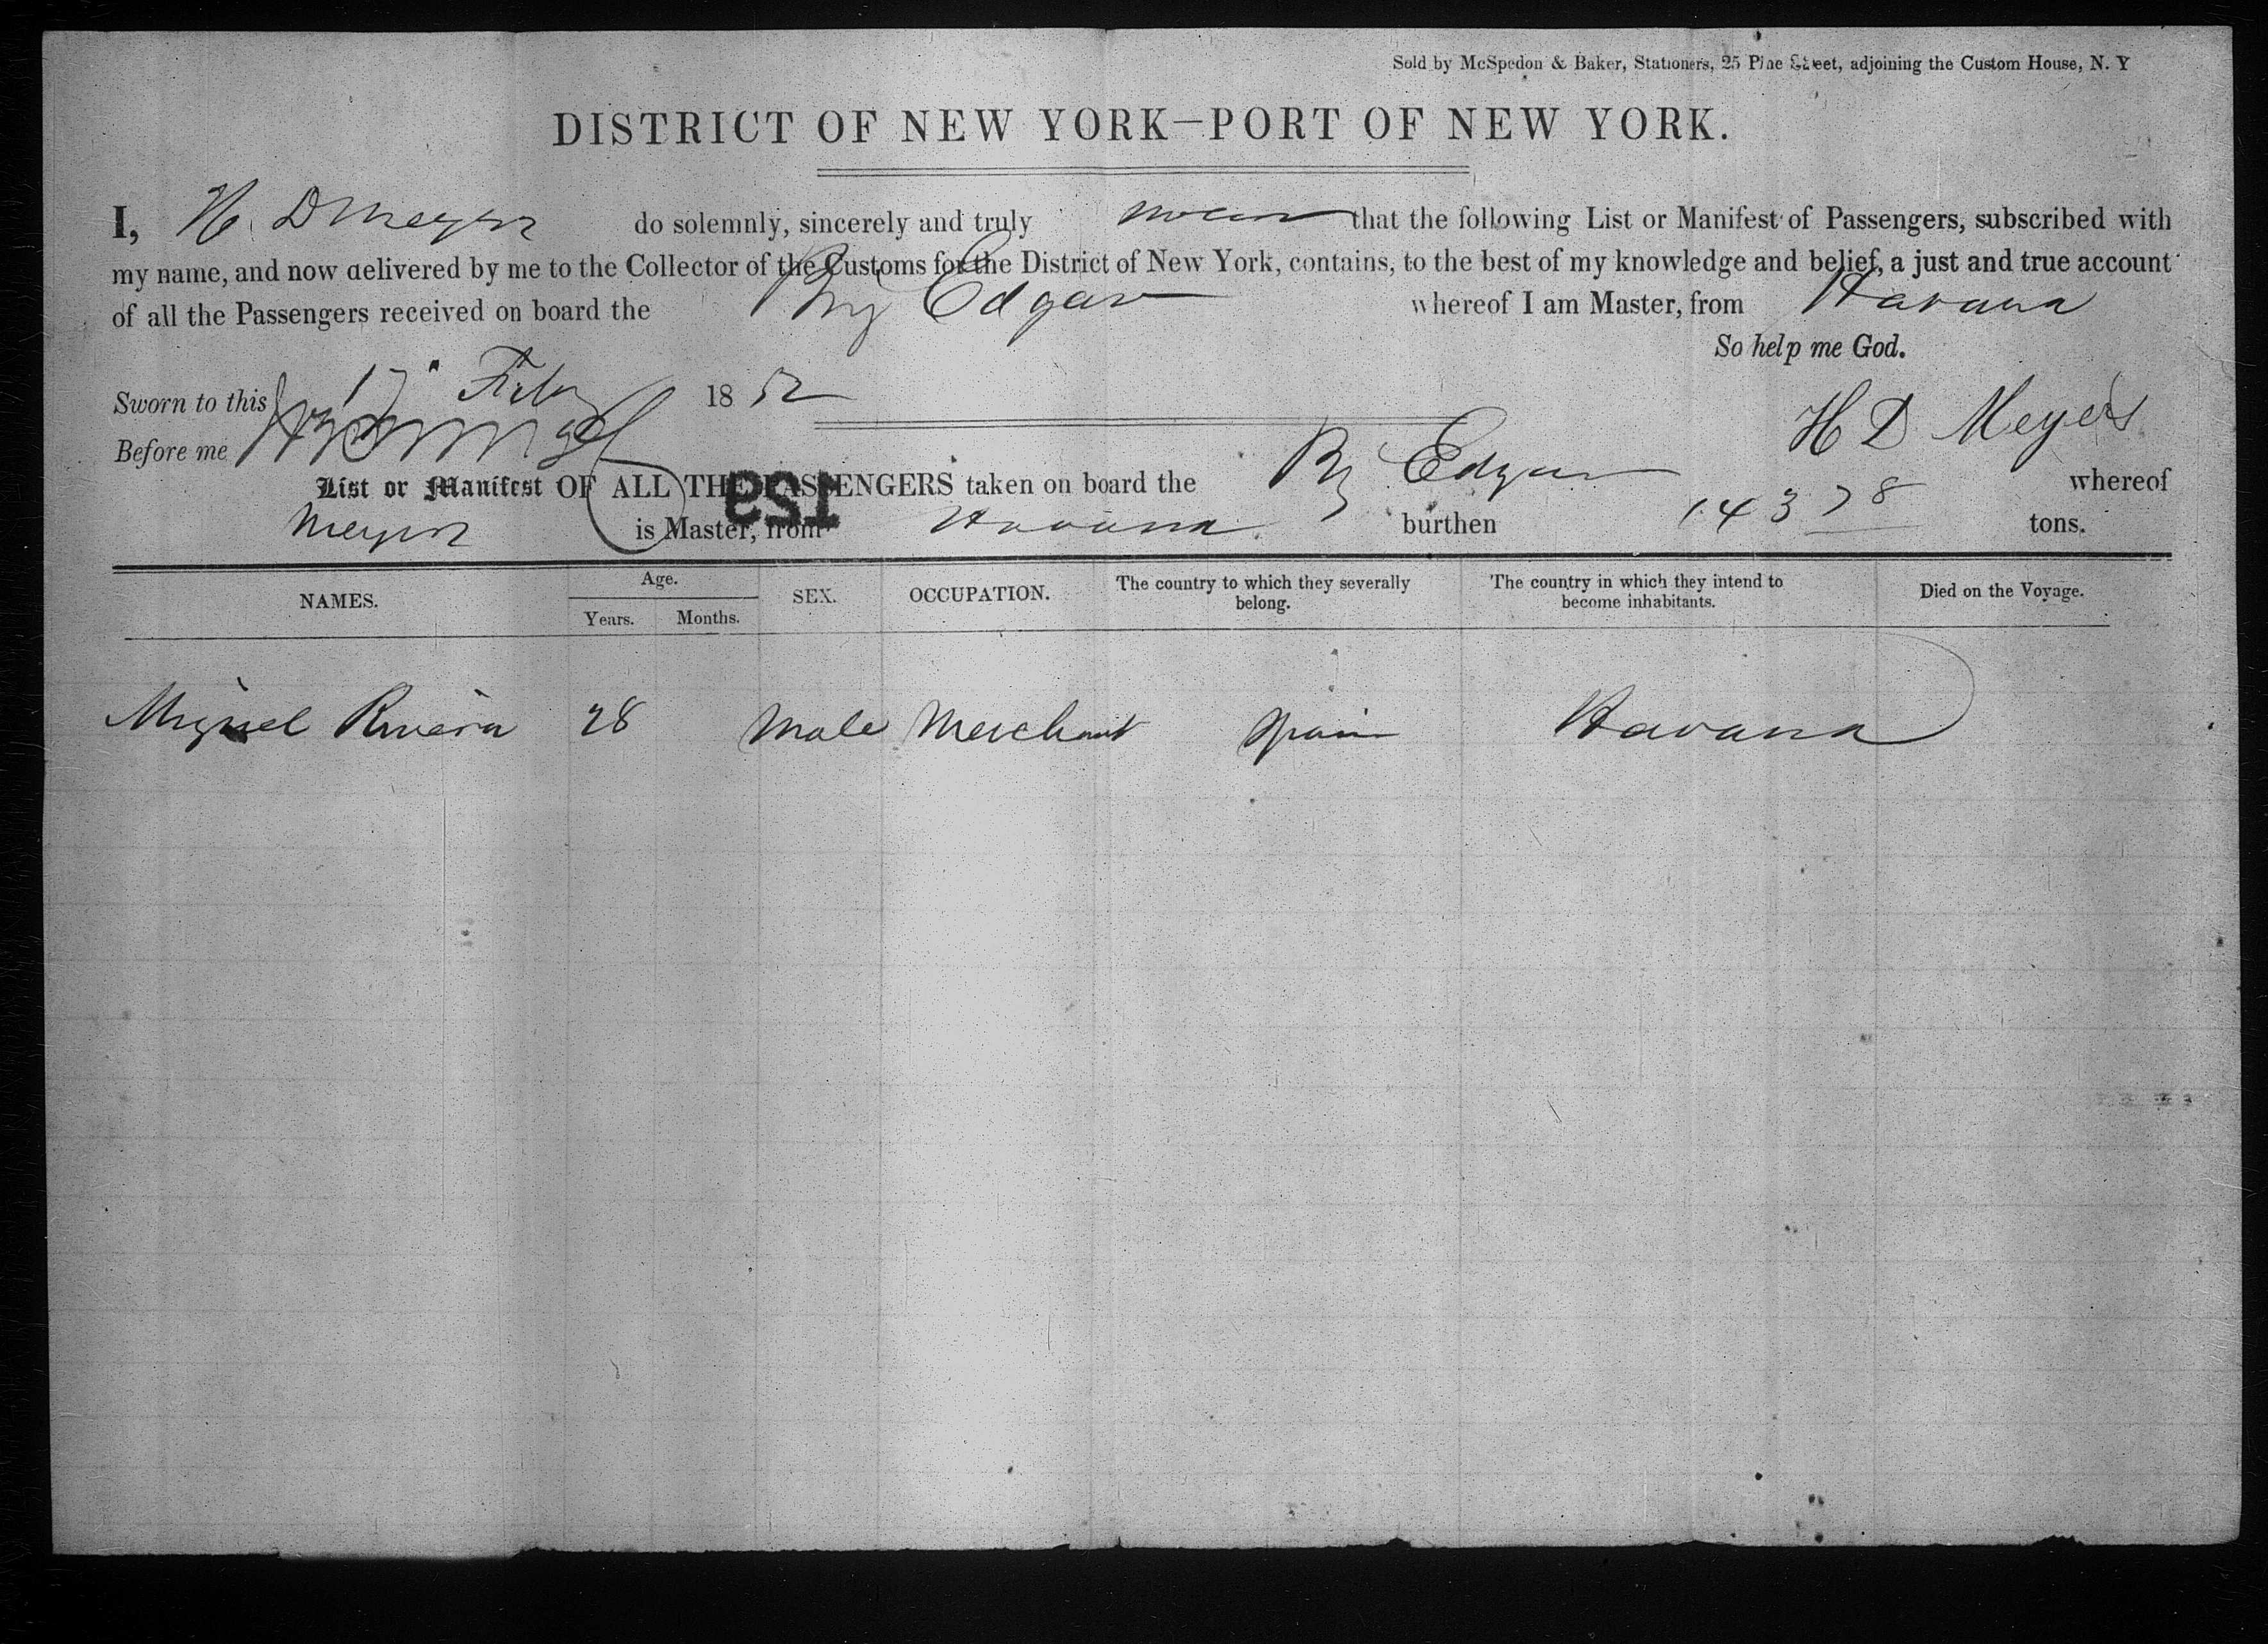 Sold by McSpedon & Baker, Stationers, 25 Pine Street, adjoining the Custom House, N. Y
DISTRICT OF NEW YORK—PORT OF NEW YORK.
I, H. D Meyers do solemnly, sincerely and truly swear that the following List or Manifest of Passengers, subscribed with
my name, and now delivered by me to the Collector of the Customs for the District of New York, contains, to the best of my knowledge and belief, a just and true account
of all the Passengers received on board the Brig Edgar whereof I am Master, from Havana
So help me God.
Sworn to this 17 Feby 1852
H D Meyers
Before me
List or Manifest OF ALL THE PASSENGERS taken on board the Brig Edgar whereof
Meyers is Master, from Havana burthen 143 78 tons.
151
NAMES. Age. Years. Months. SEX. OCCUPATION. The country to which they severally belong. The country in which they intend to become inhabitants. Died on the Voyage.
Miguel Riviera 28 Male Merchant Spain Havana